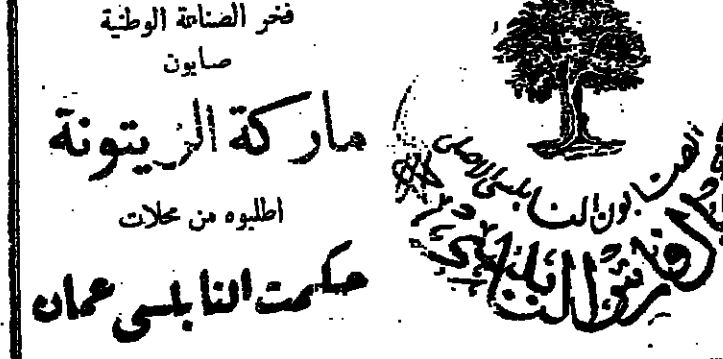 فخر الصناعة الوطنية
صابون
ماركة الزيتونة
اطلبوه من محلات
حكمت النابلسي عمان
الصابون النابلسي الاصلي